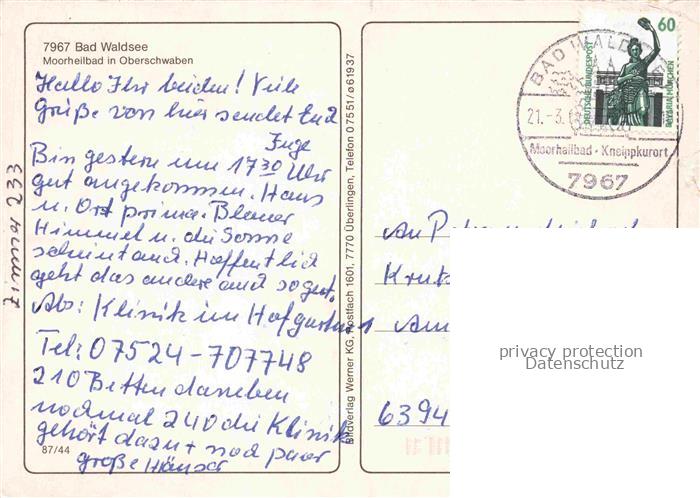 7967 Bad Waldsee
Moorheilbad in Oberschwaben
Hallo Ihr beiden! Viele
Grüße von hier sendet Euch
Inge
Bin gestern um 17 30 Uhr
gut angekommen. Haus
u. Ort prima. Blauer
Himmel u. die Sonne
scheint auch. Hoffentlich
geht das andere auch so gut.
Abs: Klinik im Hofgarten 1
Tel: 07524-707748
210 Betten daneben
nochmal 240 die Klinik
gehört dazu + noch paar
große Häuser
Zimmer 233
87/44
Bildverlag Werner KG, Postfach 1601, 7770 Überlingen, Telefon 07551/ø61937
60
DEUTSCHE BUNDESPOST
BAVARIA MÜNCHEN
BAD WALDSEE
21.-3.
Moorheilbad · Kneippkurort
7967
An
6394
privacy protection
Datenschutz